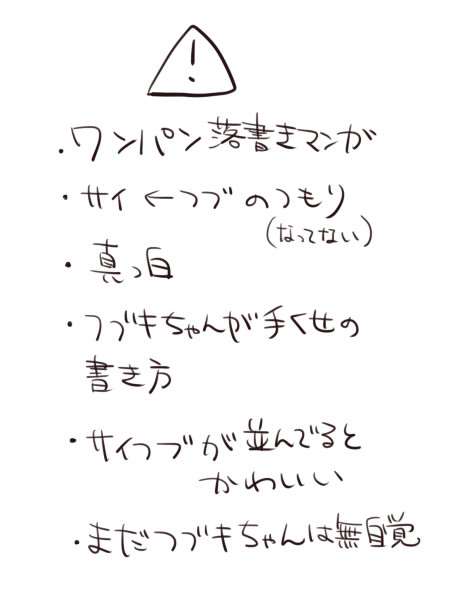 !
・ワンパン落書きマンガ
・サイ←フブのつもり
(なってない)
・真っ白
・フブキちゃんが手くせの
書き方
・サイフブが並んでると
かわいい
・まだフブキちゃんは無自覚